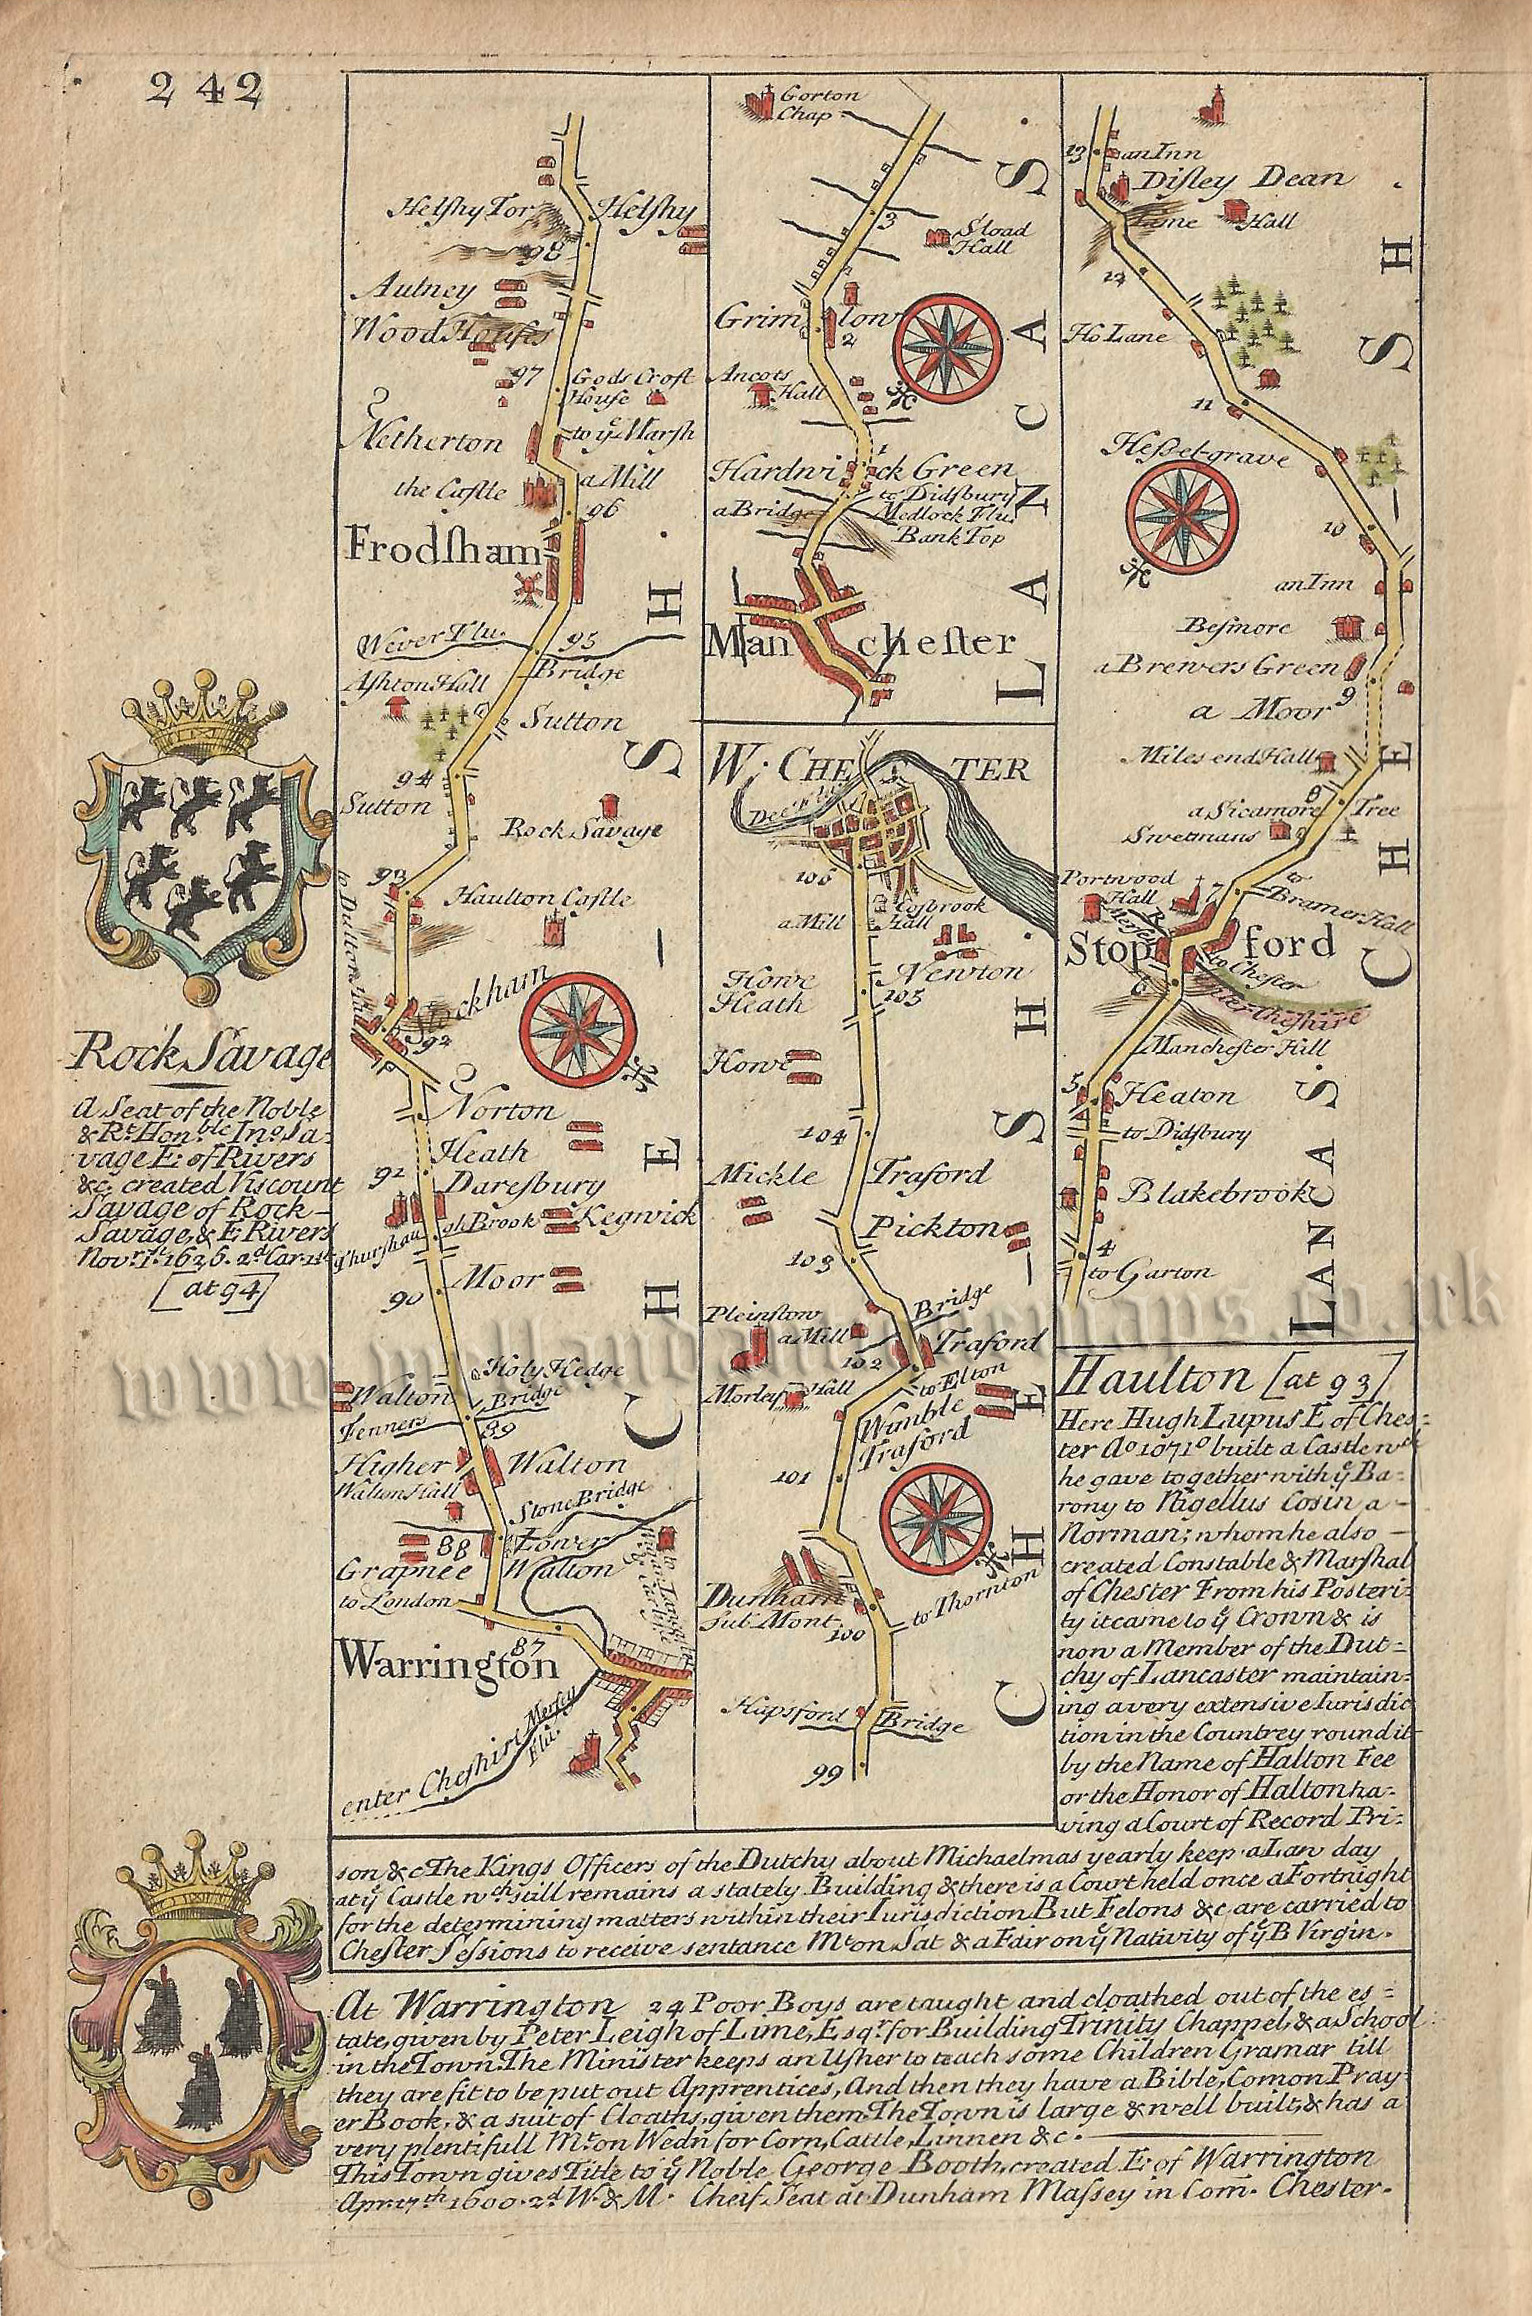 242
Helshy Tor
Helshy
98
Autney
Wood Houses
97
Gods Croft
House
Netherton
to yᵉ Marsh
a Mill
the Castle
96
Frodſham
Wever Flu.
95
Bridge
Ashton Hall
Sutton
94
Sutton
Rock Savage
93
Haulton Castle
to Dutton Hall
Stockham
92
Norton
Heath
92
Daresbury
Kegwick
Brook
Moor
90
Holy Hedge
Walton
Bridge
Fenners
89
Higher
Walton
Walton Hall
Stone Bridge
88
Lower
Walton
Grapnee
to London
87
Warrington
enter Cheshire
Mersey
Flu.
CHESH.
Gorton
Chap
3
Sload
Hall
Grimlow
2
Ancots
Hall
1
Hardwick Green
to Didsbury
a Bridge
Medlock Flu.
Bank Top
Mancheſter
LANCAS.
W. CHESTER
Dee
106
a Mill
Cosbrook
Hall
Newton
Howe
Heath
105
Howe
104
Mickle
Traford
Pickton
103
Pleinstow
a Mill
Bridge
102
Traford
to Elton
Morley Hall
Wimble
Traford
101
Dunham
Sub Mont
100
to Thornton
Hapsford
Bridge
99
CHESH.
13
an Inn
Disley Dean
Lime
Hall
12
Ho Lane
11
Hesset-grave
10
an Inn
Besmore
a Brewers Green
9
a Moor
Miles end Hall
8
a Sicamore Tree
Swetmans
Portwood
Hall
7
to
Bramer Hall
Mersey R
Stopford
to Chester
6
enter Cheshire
Manchester Hill
5
Heaton
to Didsbury
Blakebrook
4
to Garton
CHESH.
LANCAS.
Rock Savage
A Seat of the Noble
& Rᵗ Honᵇˡᵉ Inᵒ Sa-
vage E: of Rivers
&c. created Viscount
Savage of Rock-
Savage, & E Rivers
Novʳ 1ˢᵗ 1626. 2ᵈ Car. 1ˢᵗ
[at 94]
Haulton [at 93]
Here Hugh Lupus E of Ches-
ter Aᵒ 1071ᵒ built a Castle wᶜʰ
he gave together with yᵉ Ba-
rony to Nigellus Cosin a-
Norman; whom he also-
created Constable & Marshal
of Chester From his Posteri-
ty it came to yᵉ Crown & is
now a Member of the Dut-
chy of Lancaster maintain-
ing a very extensive Iurisdic
tion in the Countrey round it
by the Name of Halton Fee
or the Honor of Halton ha-
ving a Court of Record Pri-
son &c The Kings Officers of the Dutchy about Michaelmas yearly keep a Law day
at yᵉ Castle wᶜʰ still remains a stately Building & there is a Court held once a Fortnight
for the determining matters within their Iurisdiction But Felons &c are carried to
Chester Sessions to receive sentance Mᵗ on Sat & a Fair on yᵉ Nativity of yᵉ B Virgin.
At Warrington 24 Poor Boys are taught and cloathed out of the es-
tate, given by Peter Leigh of Lime, Esqʳ. for Building Trinity Chappel, & a School
in the Town. The Minister keeps an Usher to teach some Children Gramar till
they are fit to be put out Apprentices, And then they have a Bible, Comon Pray-
er Book, & a suit of Cloaths, given them. The Town is large & well built, & has a
very plentifull Mᵗ on Wedⁿ for Corn, Cattle, Linnen &c.
This Town gives Title to yᵉ Noble George Booth, created E: of Warrington
Apr. 17ᵗʰ 1690. 2ᵈ W. & M. Cheif Seat at Dunham Massey in Com. Chester.